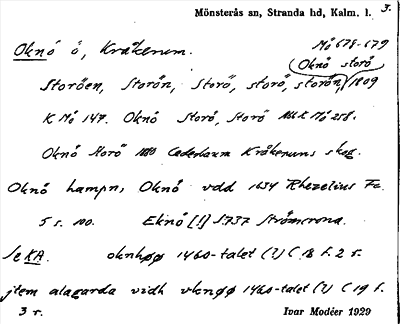 Mönsterås sn, Stranda hd, Kalm. l. 3.
Oknö ö, Kråkerum. Mö 678-679
Oknö storö
Storöen, Storön, Storö, storö, storön, 1809
K Mö 147. Oknö Storö, Storö Mö 258.
Oknö Storö Cederbaum Kråkerums skog.
Oknö hampn, Oknö udd 1634 Rhezelius Fc.
5 s. 100. Eknö [!] 1737 Strömcrona.
Se KA. oknhøø 1460-talet (?) C 18 f. 2 r.
jtem alagarda vidh vknøø 1460-talet (?) C 19 f.
3 r. Ivar Modéer 1929